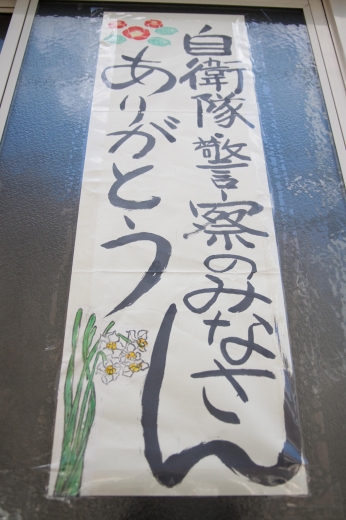 自衛隊・警察のみなさん
ありがとう